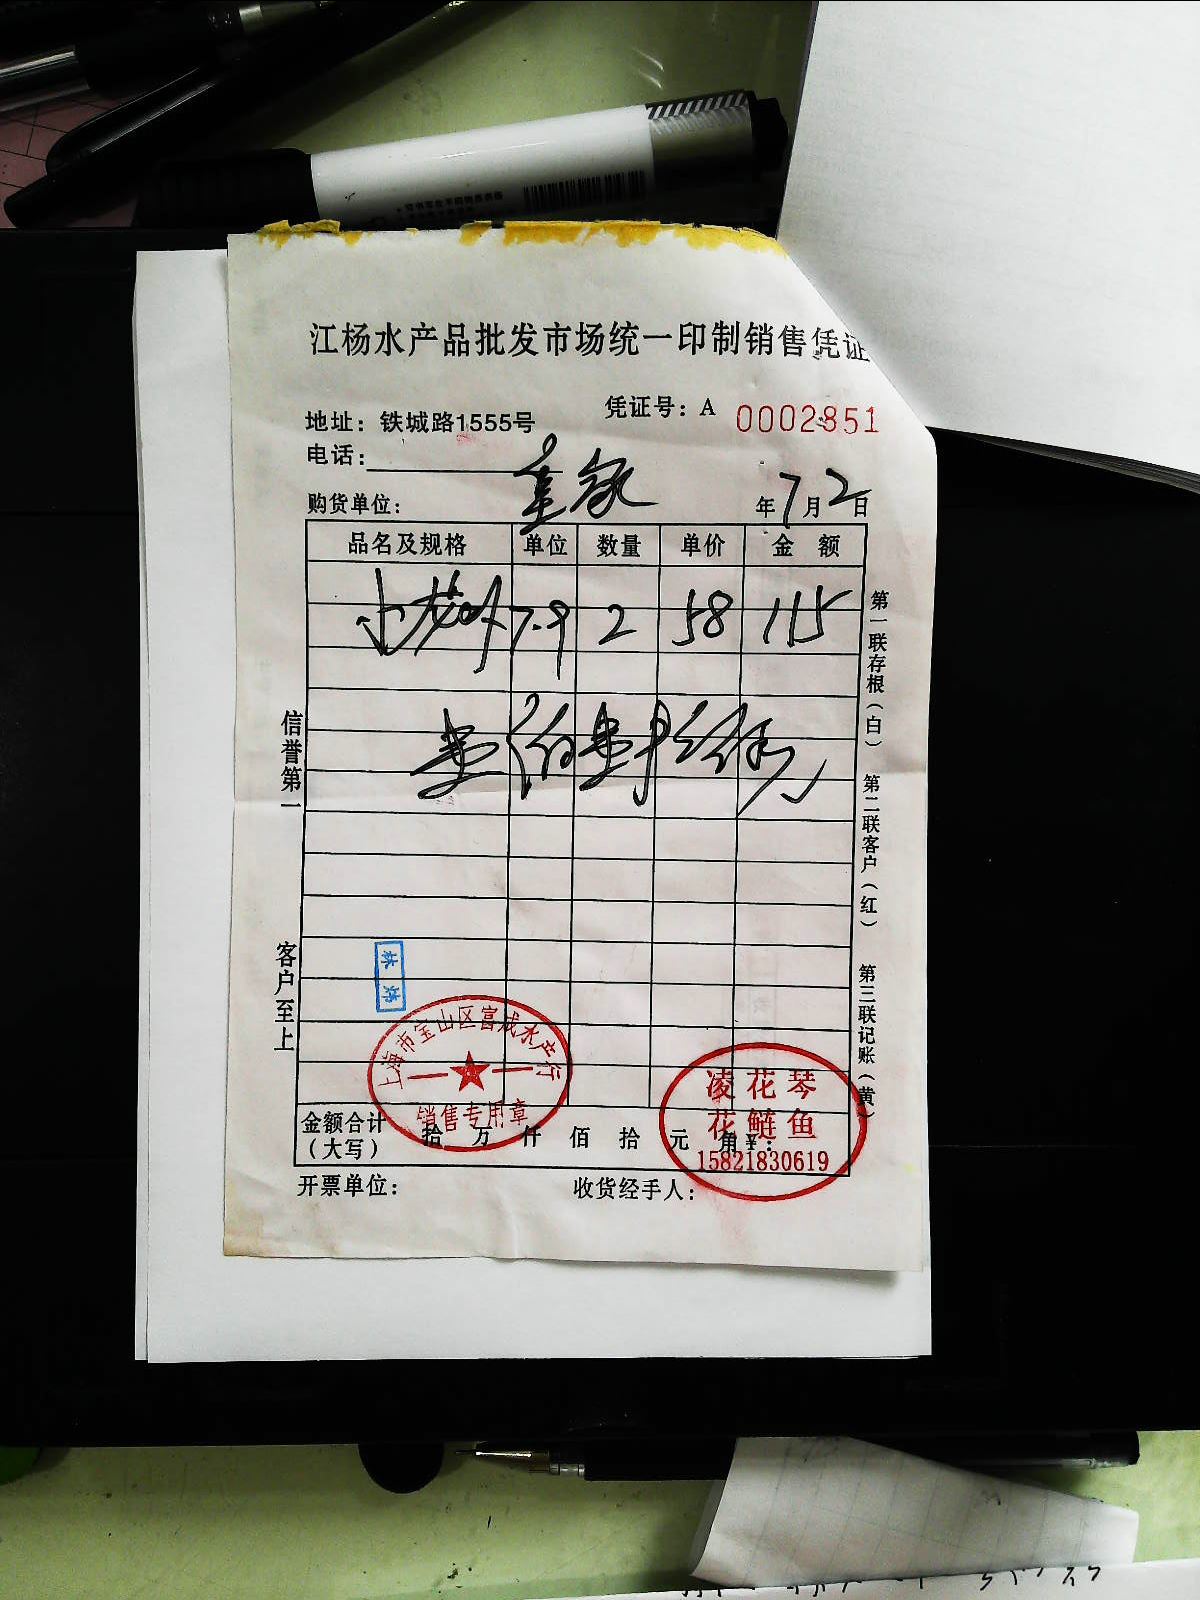 江杨水产品批发市场统一印制销售凭证
地址：铁城路1555号
凭证号：A 0002851
电话：
购货单位：
年7月2日
品名及规格 单位 数量 单价 金额
小龙虾 7-9 2 58 115
信誉第一
客户至上
第一联存根（白）
第二联客户（红）
第三联记账（黄）
上海市宝山区富成水产行
销售专用章
凌花琴
花鲢鱼
15821830619
金额合计（大写） 拾 万 仟 佰 拾 元 角 ¥：
开票单位：
收货经手人：